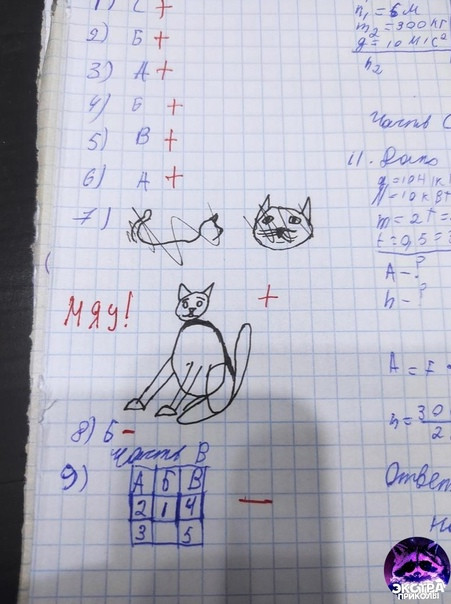 1) С +
2) Б +
3) А +
4) Б +
5) В +
6) А +
7)
МЯУ! +
8) Б -
Часть В
9)
А Б В
2 1 4
3 5
-
h₁ = 6 м
m₂ = 300 кг
g = 10 м/с²
h₂
Часть С
11. Дано
А - ?
h - ?
А =
h = 30
2
Ответ
ЭКСТРА
ПРИКОЛЫ